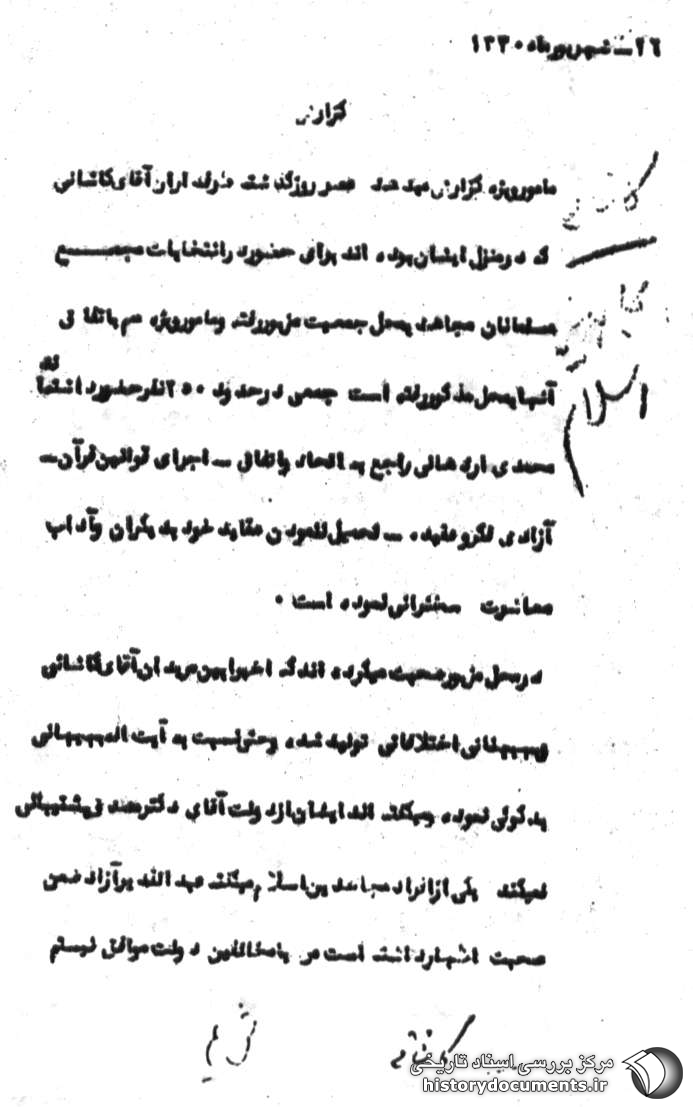 ۲۶ – شهریورماه ۱۳۳۰
گزارش
مامورویژه گزارش میدهد عصر روز گذشته طرفداران آقای کاشانی
که در منزل ایشان بوده اند برای حضور در انتخابات مجمع
مسلمانان مجاهد بمحل جمعیت مزبور رفته و مامورویژه هم باتفاق
آنها بمحل مذکور رفته است جمعی در حدود ۲۵۰ نفر حضور داشته‌اند
محمدی اردهالی راجع به اتحاد و اتفاق – اجرای قوانین قرآن –
آزادی فکر و عقیده – تحمیل ننمودن عقاید خود بدیگران و آداب
معاشرت سخنرانی نموده است ۰
در محل مزبور صحبت میکرده اند که اخیرا بین مریدان آقای کاشانی
و بهبهانی اختلافاتی تولید شده و حتی نسبت به آیت اله بهبهانی
بدگوئی نموده و میگفته اند ایشان از دولت آقای دکتر مصدق پشتیبانی
نمیکند یکی از افراد مجاهدین اسلام میگفته عبدالله برآزاد ضمن
صحبت اظهار داشته است من با مخالفین دولت موافق نیستم
کاشانی
مجاهدین
اسلام
کاشانی
مرکز بررسی اسناد تاریخی
historydocuments.ir